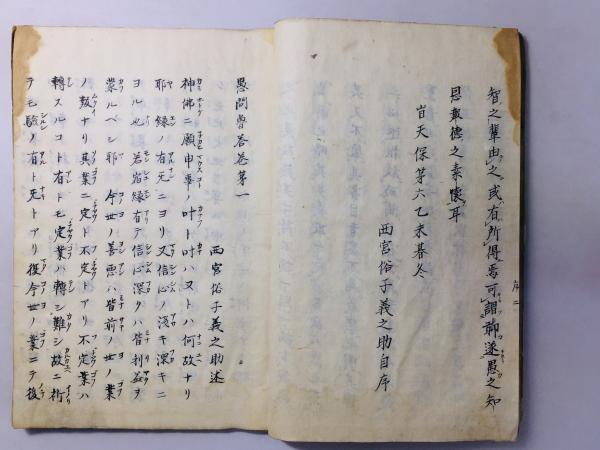 智之輩由之或有所得焉可謂聊遂愚之知
恩報徳之素懐耳
旹天保第六乙未暮冬
西宮俗子義之助自序
序二
愚問曹答巻第一
西宮俗子義之助述
神佛ニ願申事ノ叶ト叶ハヌトハ何故ナリ
耶縁ノ有无ニヨリ又信心ノ浅キ深キニ
ヨル也若宿縁有テ信心深クハ皆利益ヲ
蒙ルベシ耶今世ノ善悪ハ皆前ノ世ノ業
ノ報ナリ其業ニ定ト不定トアリ不定業ハ
轉スルコト有トモ定業ハ轉シ難シ故ニ祈
テモ驗ノ有ト无トアリ從今世ノ業ニテ後